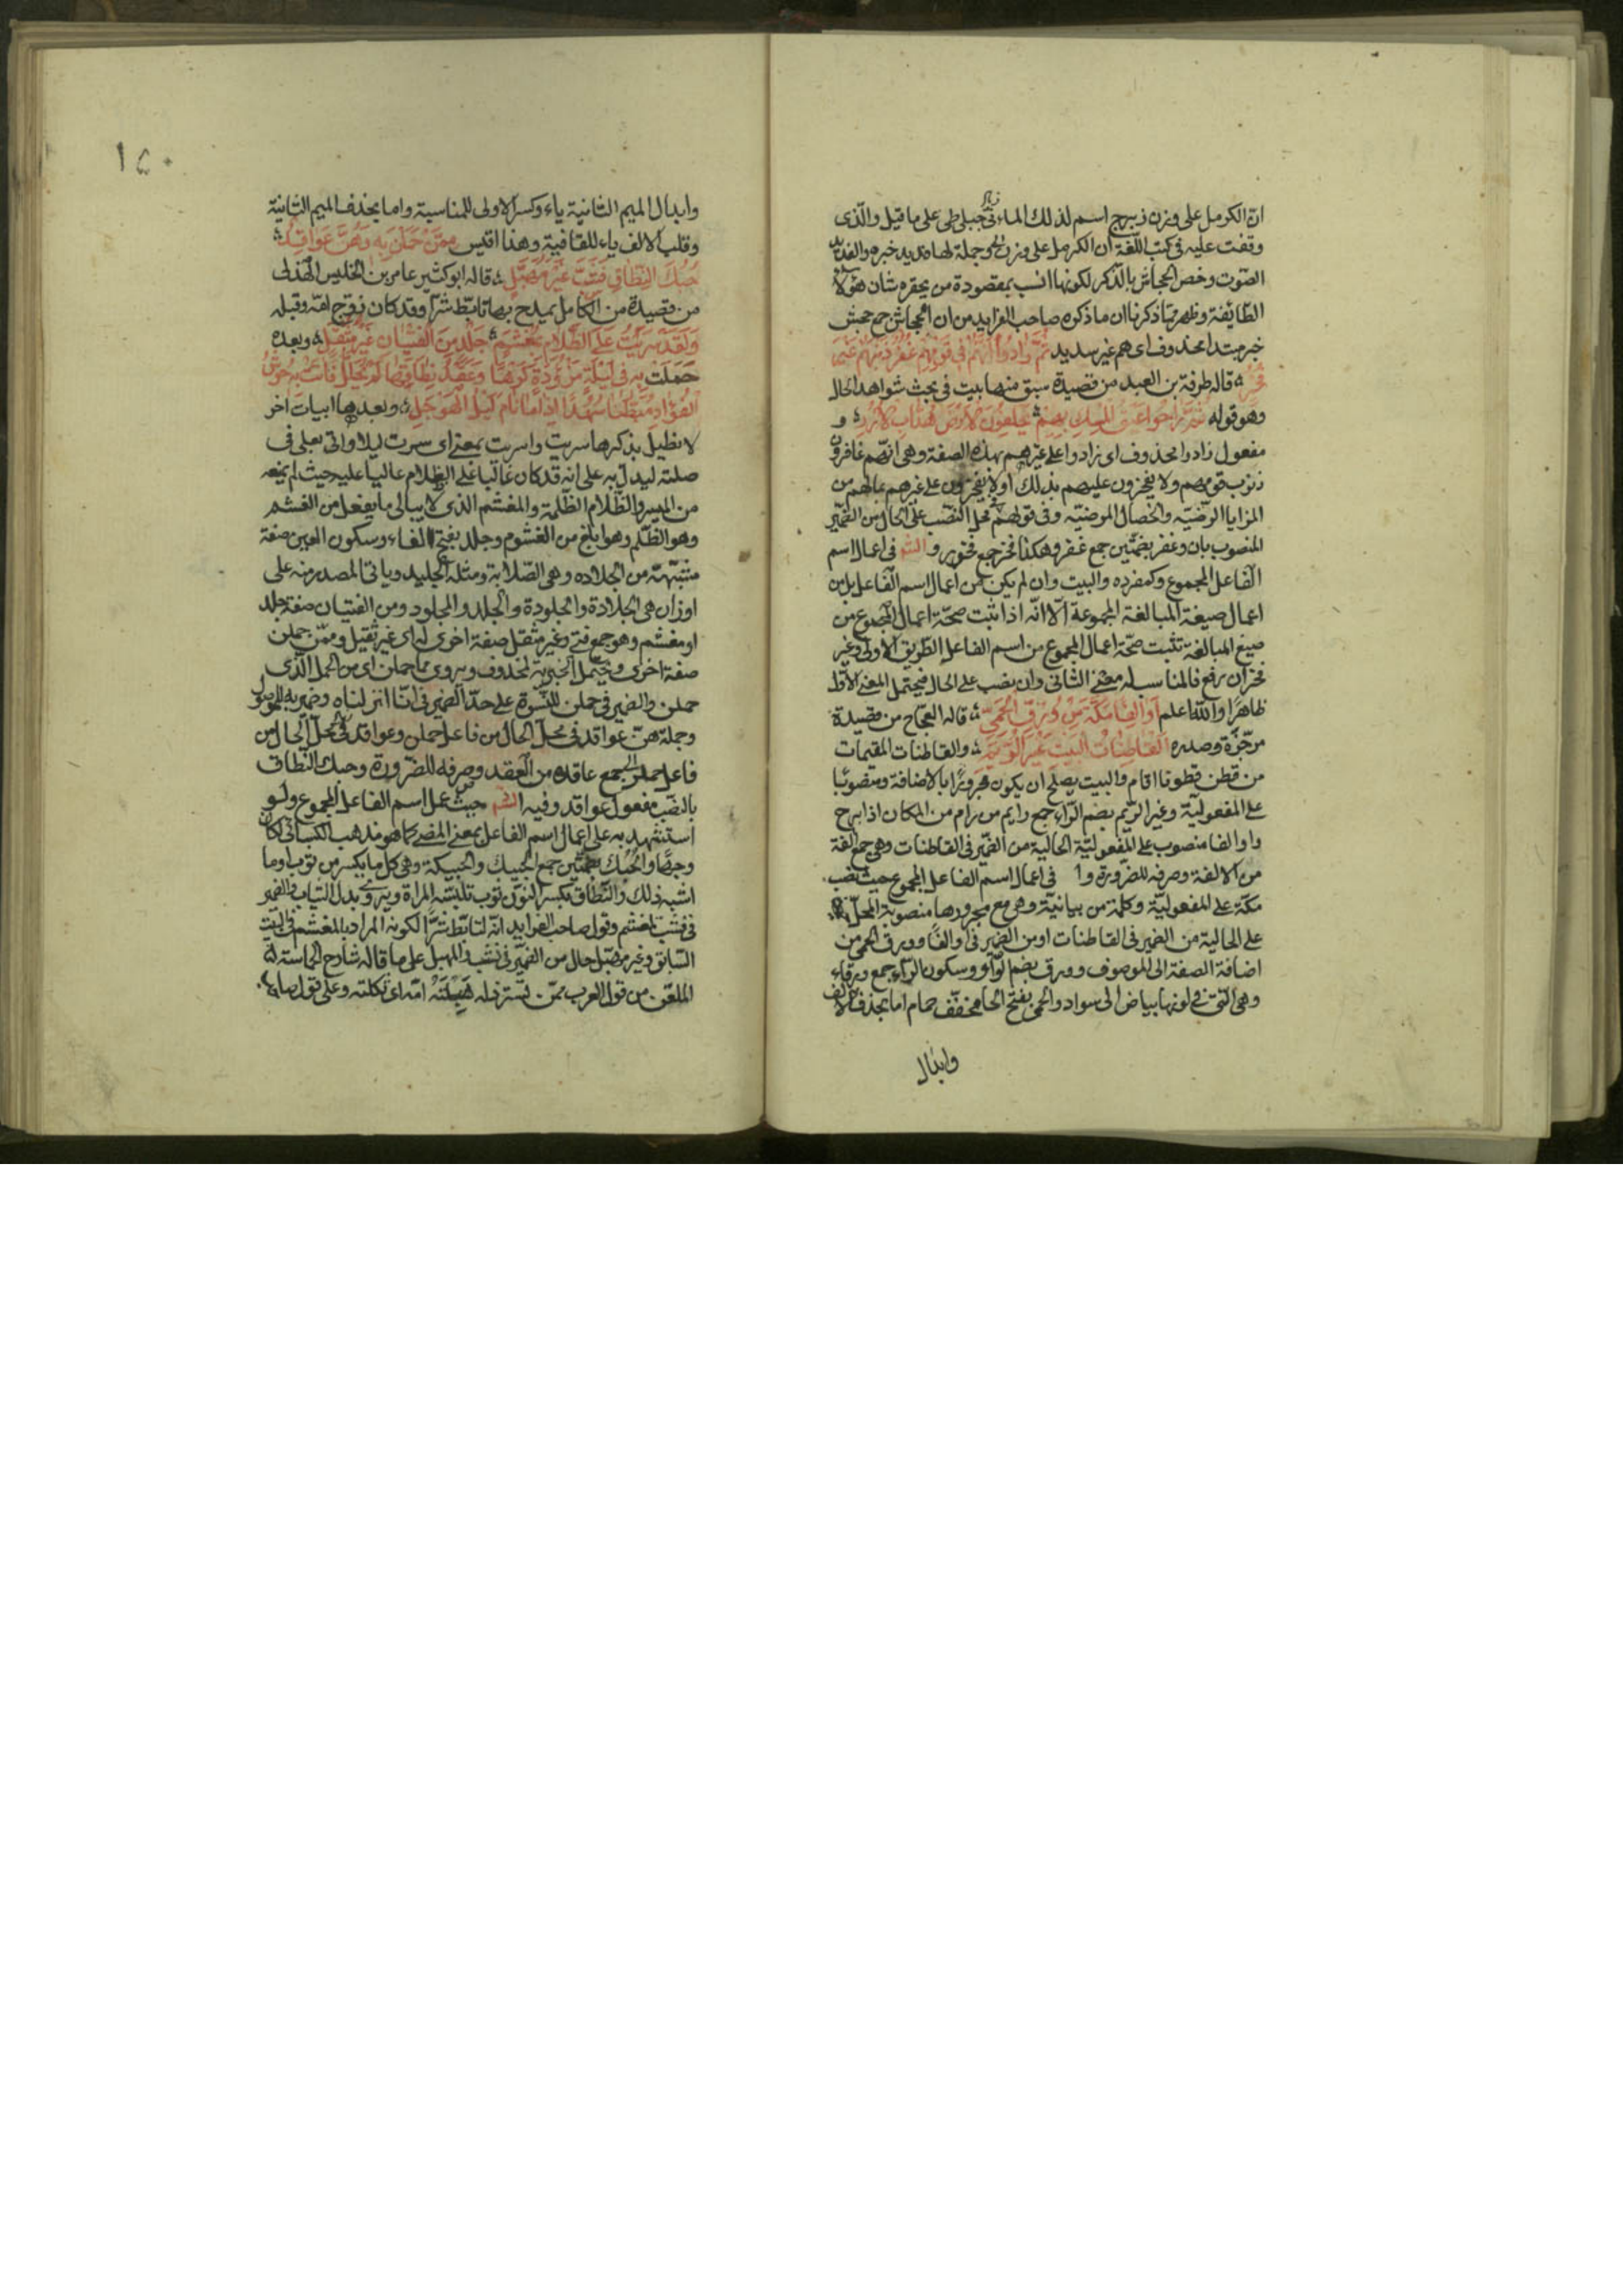 ان الكرمل على وزن زبرج اسم لذلك الماء فى جبلى طى على ما قيل والذى
وقفت عليه فى كتب اللغة ان الكرمل على وزن وجملة لها فديد خبره والفديد
الصوت وخص الجحاش بالذكر لكونها انسب بمقصوده من تحقره شان هؤلاء
الطائفة وظهر مما ذكرنا ان ما ذكره صاحب الفرايد من ان الجحاش جمع جحش
خبر مبتدا محذوف اى هم غير سديد ثم زادوا انهم فى قومهم غفر ذنبهم غير
فخر قاله طرفة بن العبد من قصيدة سبق منها بيت فى بحث شواهد الحال
وهو قوله ثم راحوا عبق المسك بهم يلحفون الارض هداب الازر و
مفعول زادوا محذوف اى زادوا على غيرهم بهذه الصفة وهى انهم غافرون
ذنوب قومهم ولا يفخرون عليهم بذلك او لا يفخرون على غيرهم بمالهم من
المزايا الرضية والخصال المرضية وفى قومهم محل النصب على الحال من الضمير
المنصوب بان وغفر بضمتين جمع غفور وهكذا فخر جمع فخور و الشم فى اعمال اسم
الفاعل المجموع وكمفرده والبيت وان لم يكن من اعمال اسم الفاعل بل من
اعمال صيغة المبالغة المجموعة الا انه اذا ثبت صحة اعمال المجموع من
صيغ المبالغة تثبت صحة اعمال المجموع من اسم الفاعل الطريق الاولى وغير
فخر ان رفع فالمناسب له معنى الثانى وان نصب على الحال فيحتمل المعنى الاول
ظاهرا والله اعلم اوالفا مكة من ورق الحمى قاله العجاج من قصيدة
مرجزة وصدره القاطنات البيت غير الريم والقاطنات المقيمات
من قطن قطونا اقام والبيت يصلح ان يكون مجرورا بالاضافة ومنصوبا
على المفعولية وغير الريم بضم الراء جمع رايم من رام من المكان اذا برح
واوالفا منصوب على المفعولية الحالية من الضمير فى القاطنات وهى جمع الفة
من الالفة وصرفه للضرورة و فى اعمال اسم الفاعل المجموع حيث نصب
مكة على المفعولية وكلمة من بيانية وهى مع مجرورها منصوبة المحل
على الحالية من الضمير فى القاطنات او من الضمير فى اوالفا وورق الحمى من
اضافة الصفة الى الموصوف وورق بضم الواو وسكون الراء جمع ورقاء
وهى التى فى لونها بياض الى سواد والحمى بفتح الحا مخفف حمام اما بحذف الالف
وابدال
١٥٠
وابدال الميم الثانية ياء وكسر الاولى للمناسبة واما بحذف الميم الثانية
وقلب الالف ياء للقافية وهذا اقيس ممن حملن به وهن عواقد
حبك النطاق فشب غير مهبل قاله ابو كثير عامر بن الحليس الهذلى
من قصيدة من الكامل يمدح بها تابط شرا وقد كان زوج امه وقبله
ولقد سريت على الظلام بمغشم جلد من الفتيان غير مثقل وبعده
حملت به فى ليلة مزؤدة كرها وعقد نطاقها لم يحلل فاتت به حوش
الفؤاد مبطنا سهدا اذا ما نام ليل الهوجل وبعدها ابيات اخر
لا نطيل بذكرها سريت واسريت بمعنى اى سرت ليلا واتى بعلى فى
صلته ليدل به على انه قد كان غالبا على الظلام عاليا عليه حيث لم يمنعه
من المسير والظلام الظلمة والمغشم الذى لا يبالى ما يفعل من الغشم
وهو الظلم وهو ابلغ من الغشوم وجلد بفتح الفاء وسكون العين صفة
مشبهة من الجلاده وهى الصلابة ومثله الجليد وياتى المصدر منه على
اوزان هى الجلادة والجلودة والجلد والمجلود ومن الفتيان صفة جلد
او مغشم وهو جمع فتى وغير مثقل صفة اخرى له اى غير ثقيل وممن حملن
صفة اخرى ويحتمل الخبرية لمحذوف ويروى مما حملن اى من الحمل الذى
حملن والضمير فى حملن للنسوة على حد الضمير فى انا انزلناه وضمير به للموصول
وجملة هن عواقد فى محل الحال من فاعل حملن وعواقد فى محل الحال من
فاعل حملن جمع عاقده من العقد وصرفه للضرورة وحبك النطاق
بالنصب مفعول عواقد وفيه الشم حيث عمل اسم الفاعل المجموع ولو
استشهد به على اعمال اسم الفاعل بمعنى المضى كما هو مذهب الكسائى لكان
وجها والحبك بضمتين جمع الحبيك والحبيكة وهى كل ما يكسر من ثوب او ما
اشبه ذلك والنطاق بكسر النون ثوب تلبسه المراة ويروى بدل الثياب والضمير
فى فشب لمغشم وقول صاحب الفرايد انه لتابط شرا لكونه المراد بالمغشم فى البيت
السابق وغير مهبل حال من الضمير فى فشب والمهبل على ما قاله شارح الحماسة
الملعن من قول العرب ممن تسترذله هبلته امه اى ثكلته وعلى قول صاحب